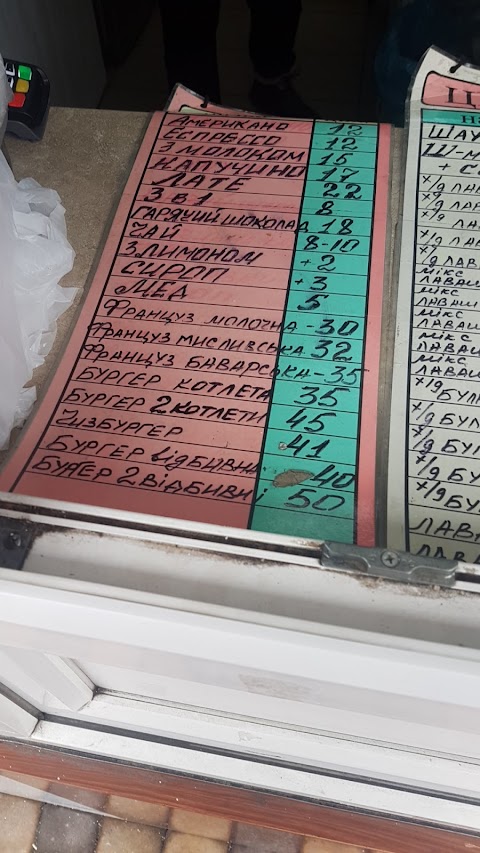 АМЕРИКАНО 12
ЕСПРЕССО 12
З МОЛОКОМ 15
КАПУЧИНО 17
ЛАТЕ 22
3 В 1 8
ГАРЯЧИЙ ШОКОЛАД 18
ЧАЙ 8-10
З ЛИМОНОМ +2
СИРОП +3
МЕД 5
ФРАНЦУЗ МОЛОЧНА -30
ФРАНЦУЗ МИСЛИВСЬКА 32
ФРАНЦУЗ БАВАРСЬКА -35
БУРГЕР КОТЛЕТА 35
БУРГЕР 2 КОТЛЕТИ 45
ЧИЗБУРГЕР 41
БУРГЕР ВІДБИВНА 40
БУРГЕР 2 ВІДБИВНІ 50
Ц
Н
ШАУ
Ш-М
+ С
Х/Д ЛАВ
Х/Д ЛАВ
Х/Д ЛАВ
Х/Д ЛАВ
Х/Д ЛАВ
МІКС
ЛАВАШ
МІКС
ЛАВАШ
МІКС
ЛАВАШ
МІКС
ЛАВАШ
МІКС
ЛАВАШ
Х/Д БУЛ
Х/Д БУЛ
Х/Д БУЛ
Х/Д БУ
Х/Д БУЛ
ЛАВАШ
ЛАВАШ